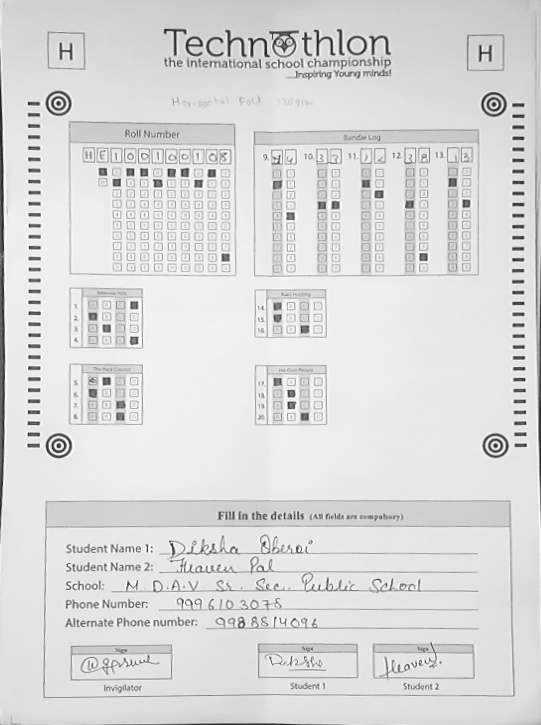 H
Technothlon
the international school championship
....Inspiring Young minds!
H
Horizontal Fold
Roll Number
HE100100108
Bandar Log
9. 14 10. 33 11. 12 12. 38 13. 13
1.
2.
3.
4.
14.
15.
16.
The Pack Council
5.
6.
7.
8.
His Own People
17.
18.
19.
20.
Fill in the details (All fields are compulsory)
Student Name 1: Diksha Oberoi
Student Name 2: Heaven Pal
School: M.D.A.V Sr. Sec. Public School
Phone Number: 9996103078
Alternate Phone number: 9988514096
Sign
Invigilator
Sign
Diksha
Student 1
Sign
Heaven
Student 2